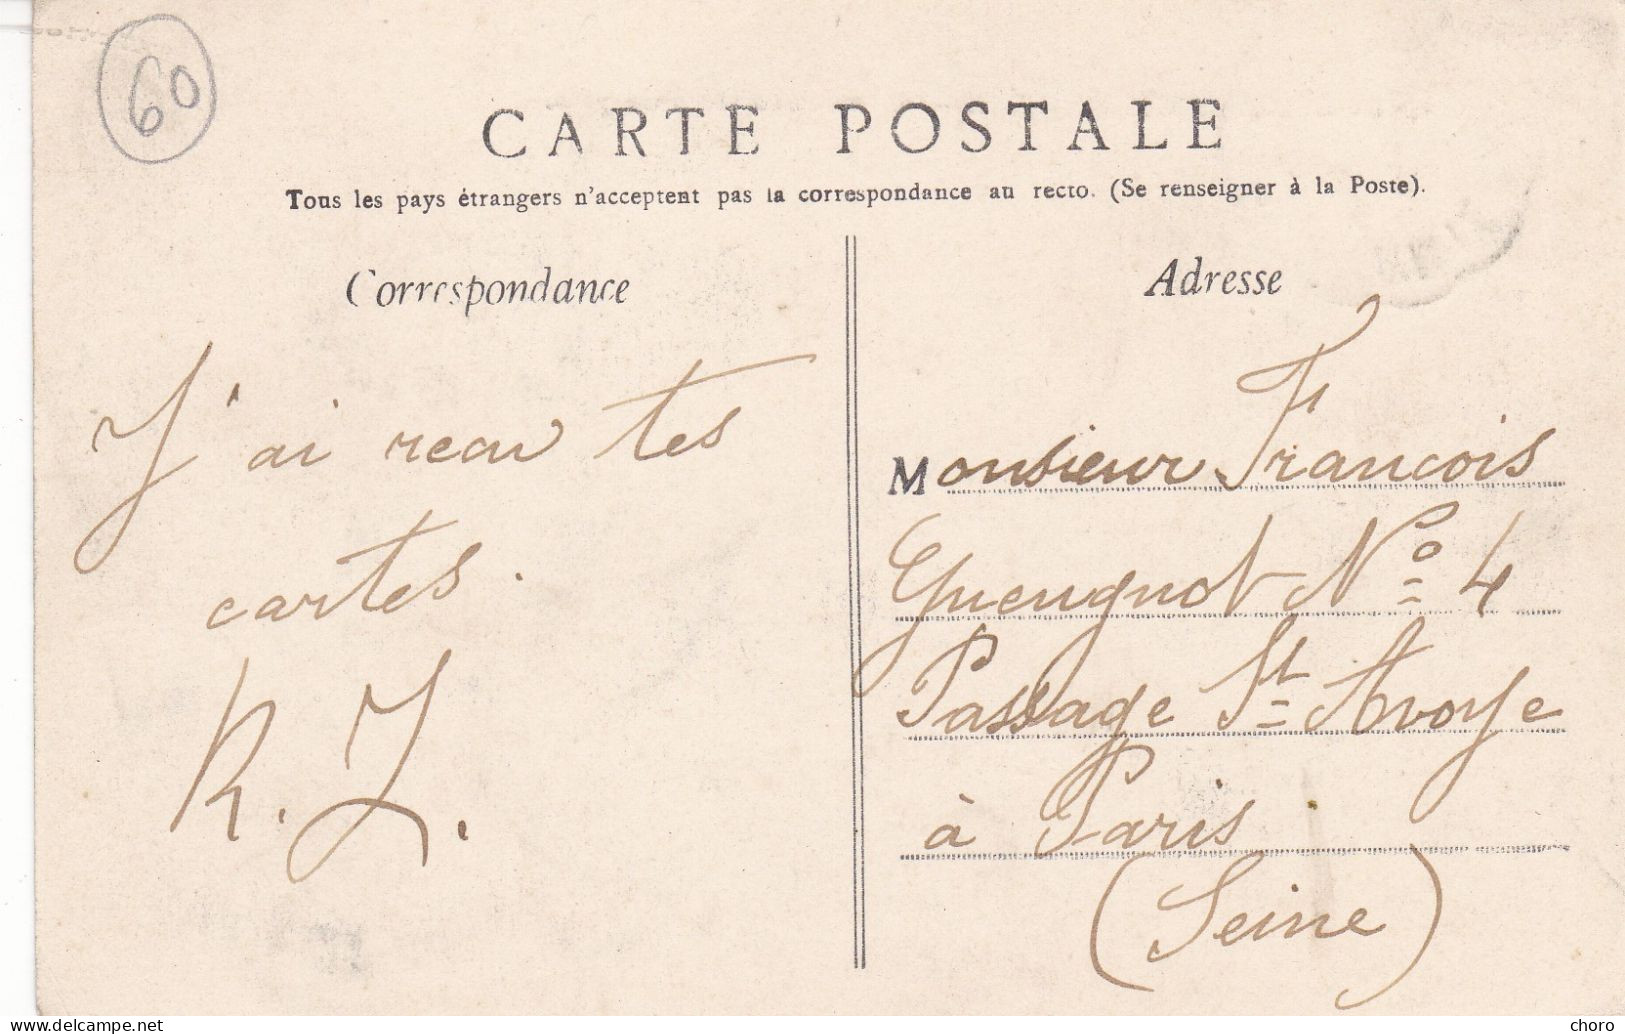 60
CARTE POSTALE
Tous les pays étrangers n'acceptent pas la correspondance au recto. (Se renseigner à la Poste).
Correspondance
J'ai recu tes
cartes.
R. J.
Adresse
Monsieur Francois
Gueugnot No 4
Passage St Avoye
à Paris
(Seine)
www.delcampe.net
choro